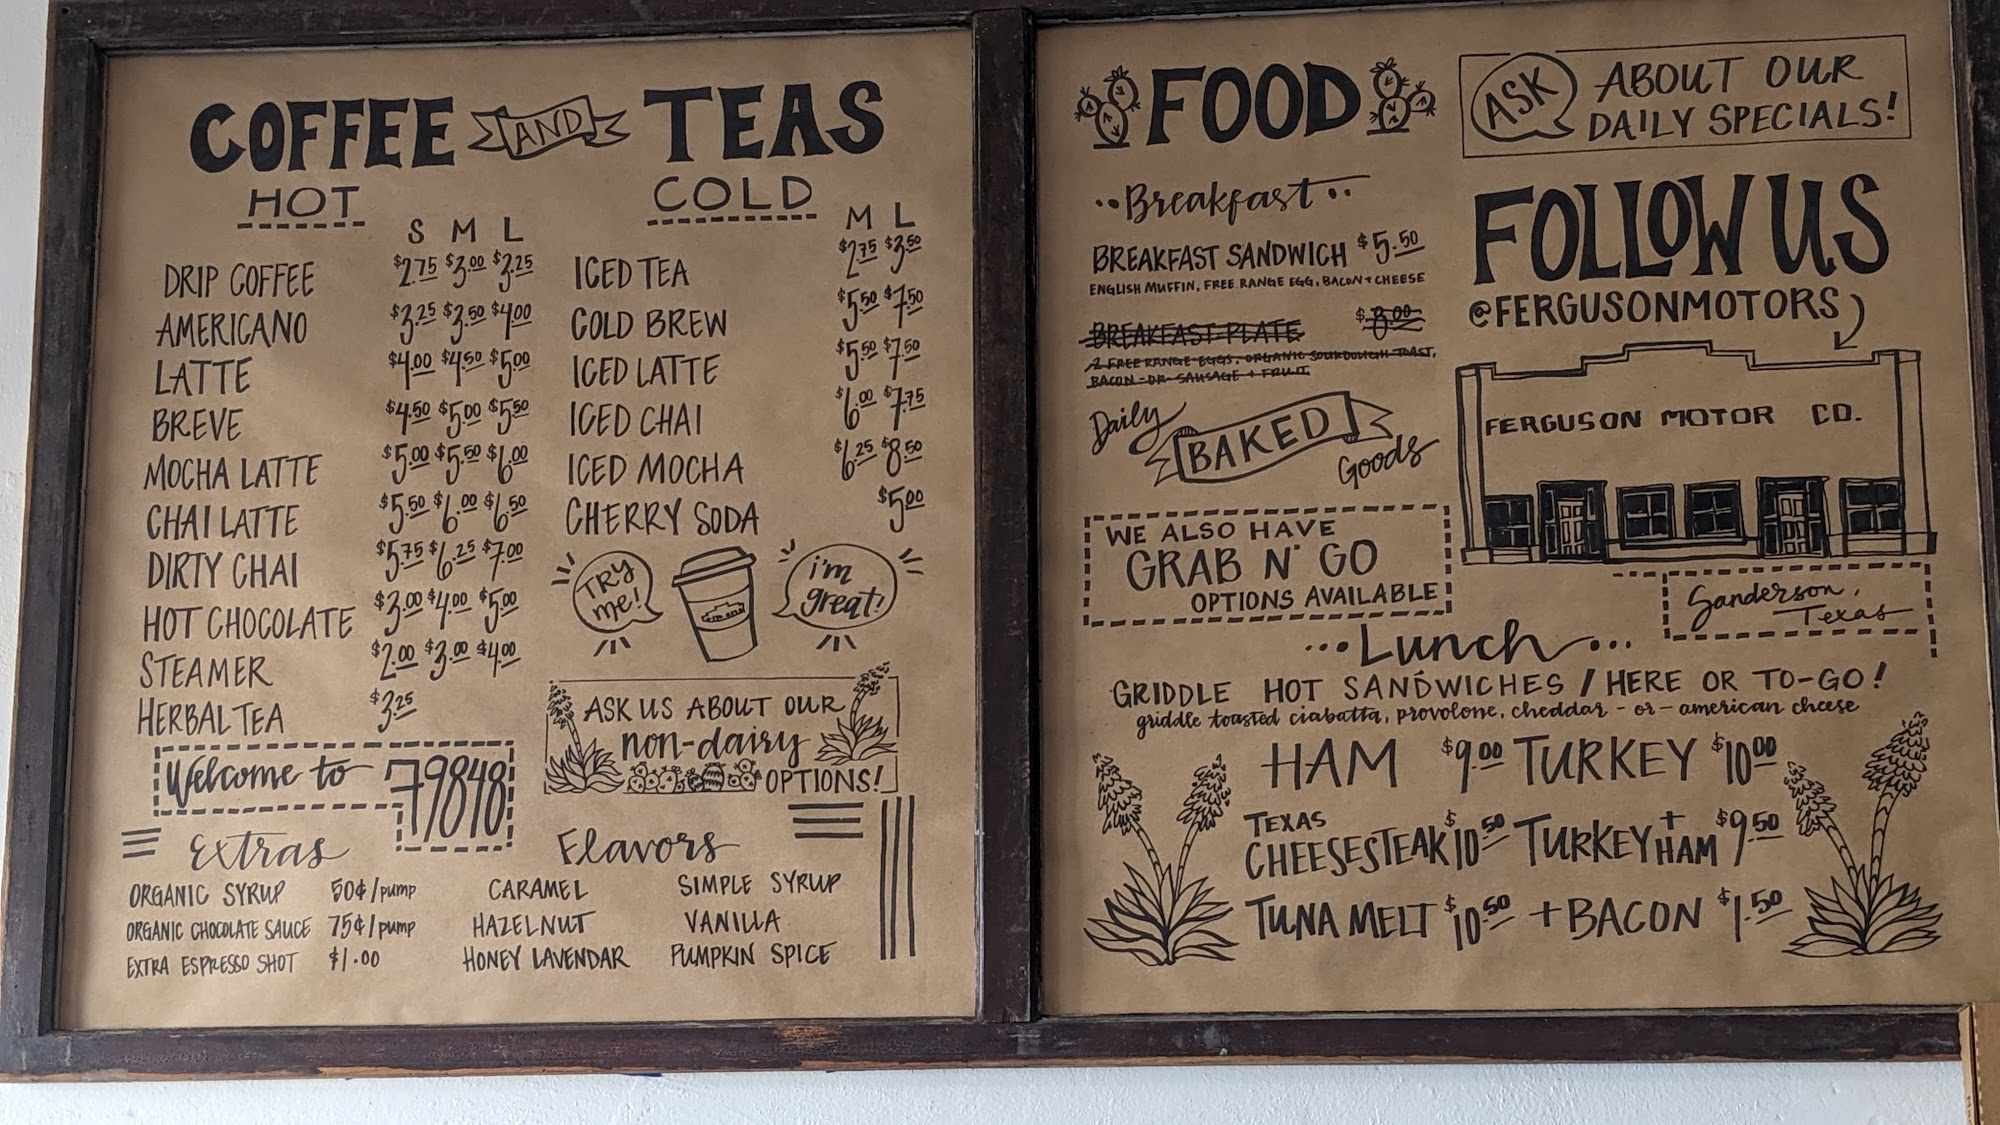 COFFEE AND TEAS
HOT
S M L
DRIP COFFEE $2.75 $3.00 $3.25
AMERICANO $3.25 $3.50 $4.00
LATTE $4.00 $4.50 $5.00
BREVE $4.50 $5.00 $5.50
MOCHA LATTE $5.00 $5.50 $6.00
CHAI LATTE $5.50 $6.00 $6.50
DIRTY CHAI $5.75 $6.25 $7.00
HOT CHOCOLATE $3.00 $4.00 $5.00
STEAMER $2.00 $3.00 $4.00
HERBAL TEA $3.25
Welcome to 79848
COLD
M L
ICED TEA $2.75 $3.50
COLD BREW $5.50 $7.50
ICED LATTE $5.50 $7.50
ICED CHAI $6.00 $7.75
ICED MOCHA $6.25 $8.50
CHERRY SODA $5.00
TRY me!
i'm great!
ASK US ABOUT OUR
non-dairy
OPTIONS!
Extras
ORGANIC SYRUP 50¢/pump
ORGANIC CHOCOLATE SAUCE 75¢/pump
EXTRA ESPRESSO SHOT $1.00
Flavors
CARAMEL SIMPLE SYRUP
HAZELNUT VANILLA
HONEY LAVENDAR PUMPKIN SPICE
FOOD
ASK ABOUT OUR
DAILY SPECIALS!
Breakfast
BREAKFAST SANDWICH $5.50
ENGLISH MUFFIN, FREE RANGE EGG, BACON + CHEESE
BREAKFAST PLATE $8.00
2 FREE RANGE EGGS, ORGANIC SOURDOUGH TOAST,
BACON -OR- SAUSAGE + FRUIT
Daily BAKED Goods
WE ALSO HAVE
GRAB N' GO
OPTIONS AVAILABLE
FOLLOW US
@FERGUSONMOTORS
FERGUSON MOTOR CO.
Sanderson,
Texas
...Lunch...
GRIDDLE HOT SANDWICHES / HERE OR TO-GO!
griddle toasted ciabatta, provolone, cheddar - or - american cheese
HAM $9.00 TURKEY $10.00
TEXAS
CHEESESTEAK $10.50 TURKEY + HAM $9.50
TUNA MELT $10.50 + BACON $1.50